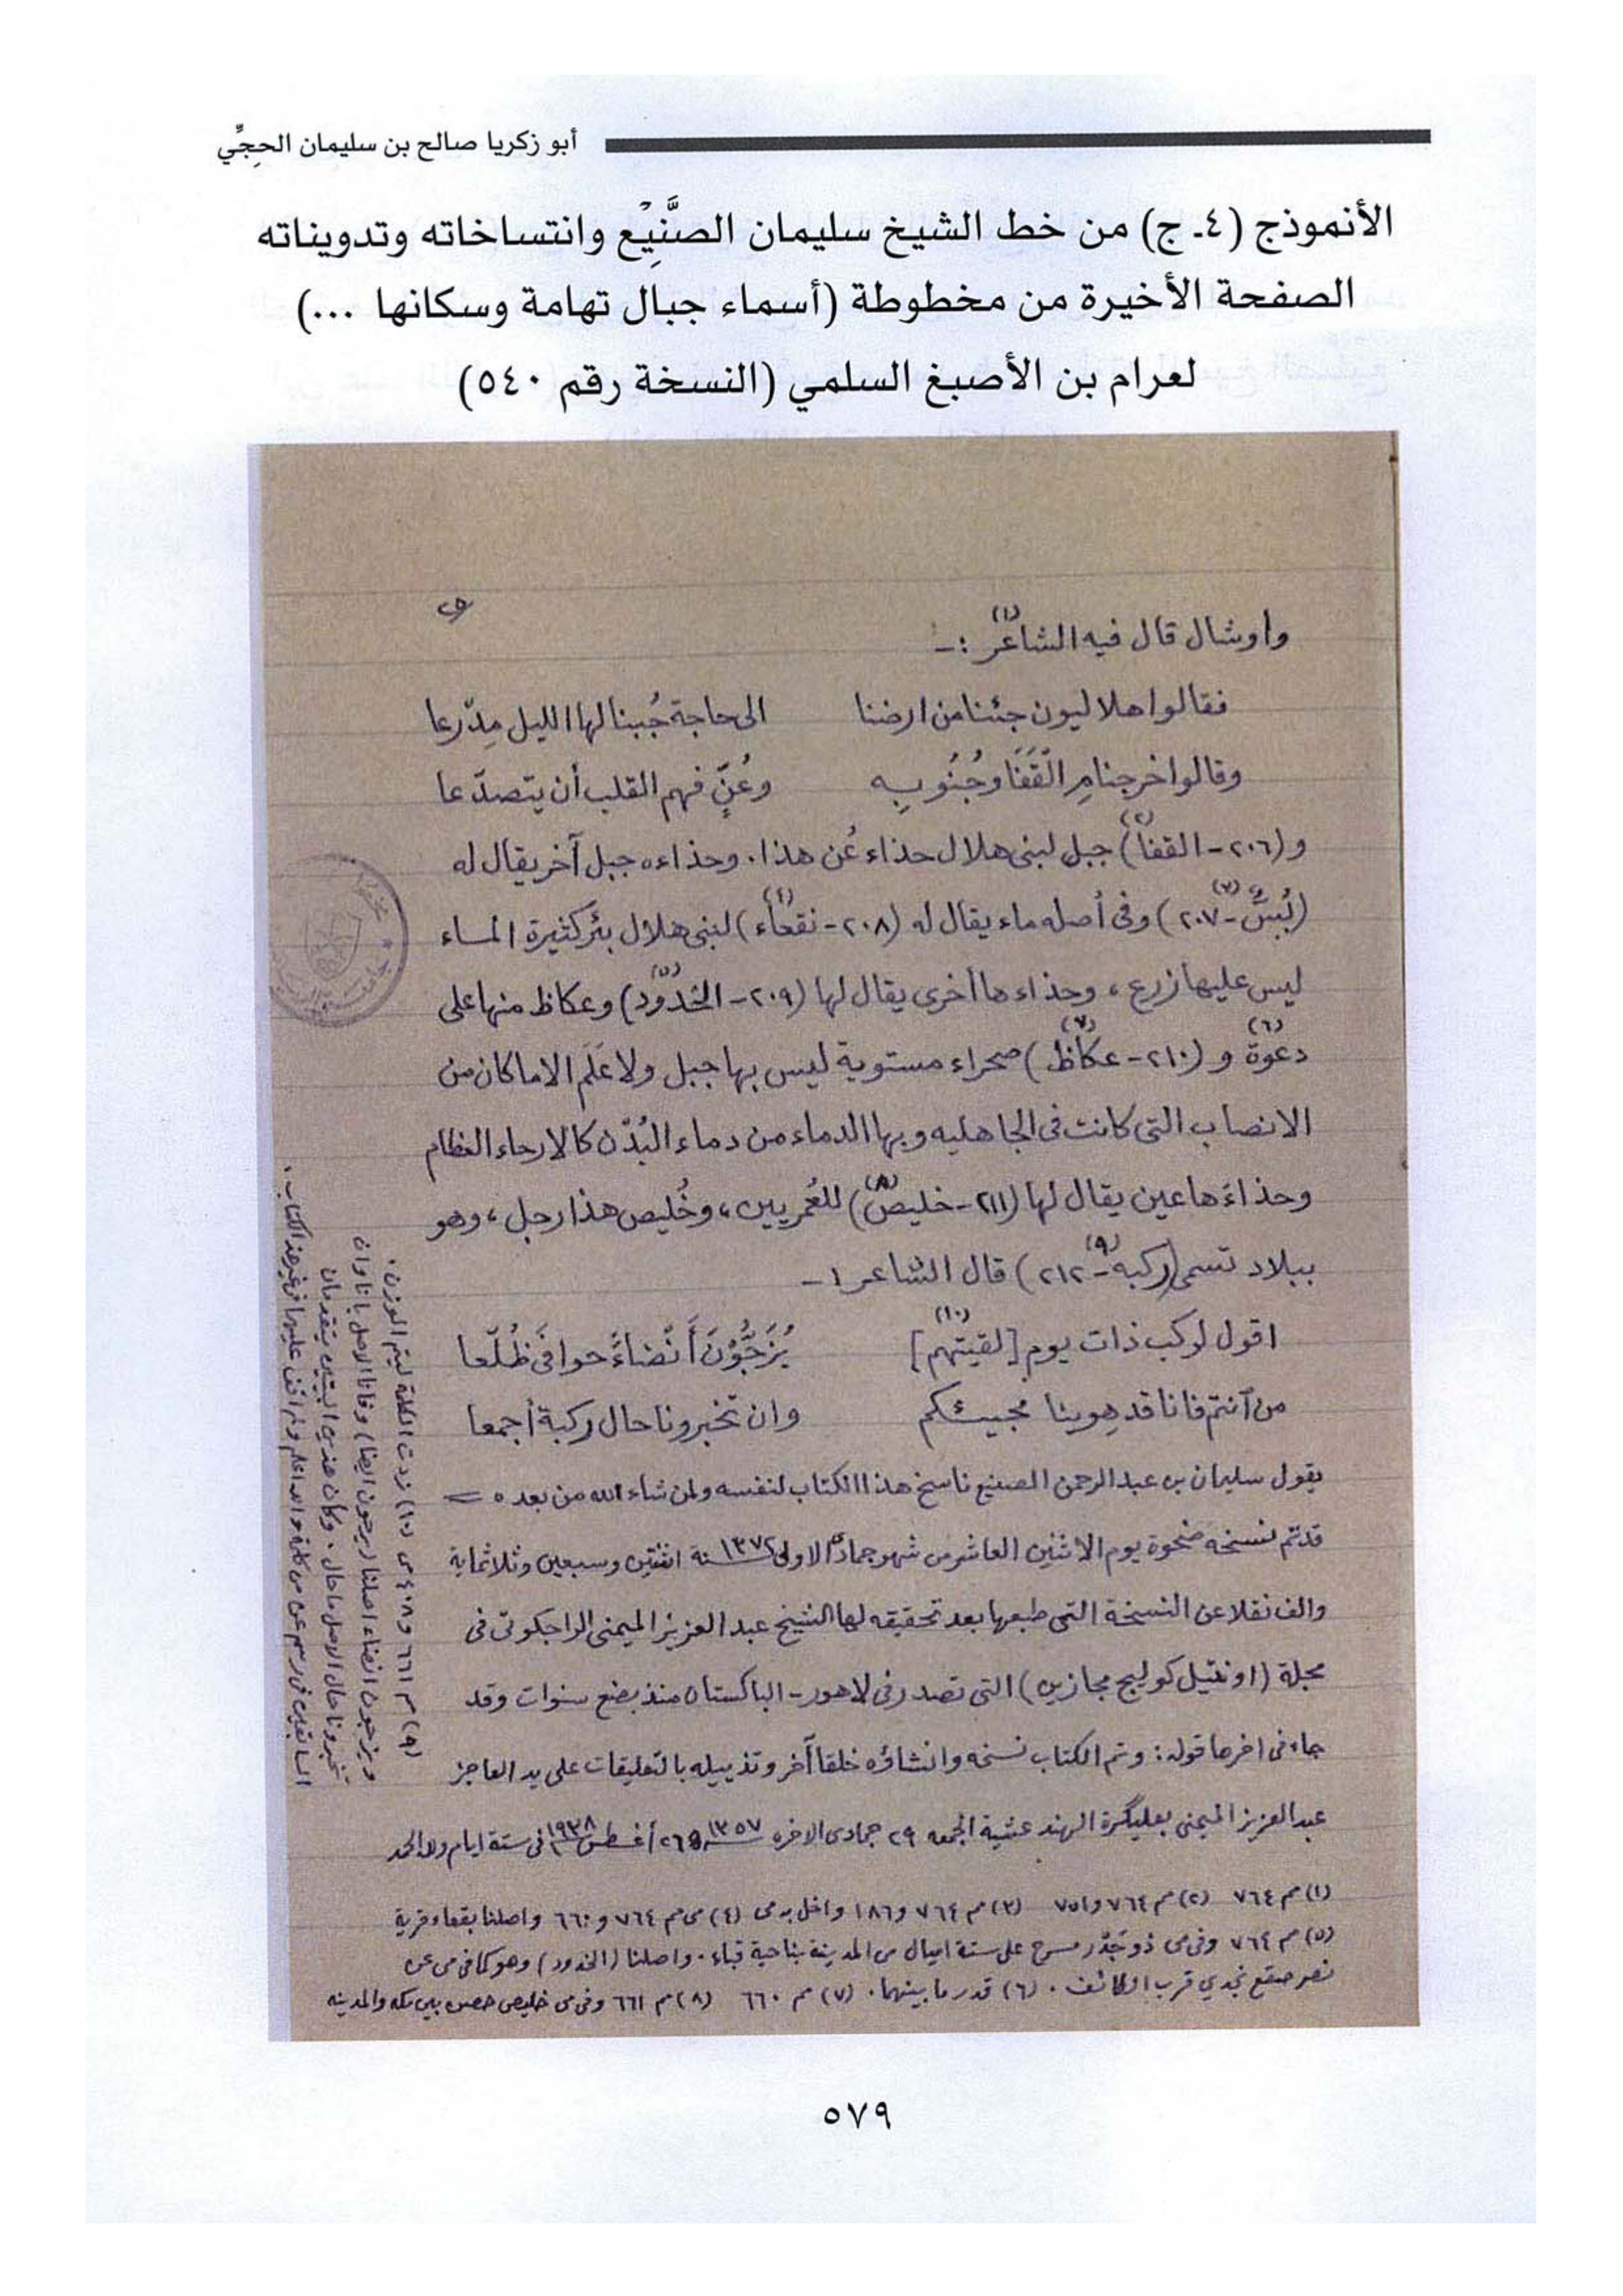 أبو زكريا صالح بن سليمان الحجِّي
الأنموذج (٤ـ ج) من خط الشيخ سليمان الصَّنِيْع وانتساخاته وتدويناته
الصفحة الأخيرة من مخطوطة (أسماء جبال تهامة وسكانها ...)
لعرام بن الأصبغ السلمي (النسخة رقم ٥٤٠)
واوشال قال فيه الشاعر (١) :ـ
فقالوا هلاليون جئنا من ارضنا الى حاجة جُبنا لها الليل مِدّرعا
وقالوا خرجنا مِ الْقَفَا وجُنُوبِه وعُنٍّ فهم القلب أن يتصدّعا
و (٢٠٦ - القفا) (٢) جبل لبنى هلال حذاء عُن هذا . وحذاءه جبل آخر يقال له
(بُسٌّ - ٢٠٧) (٣) وفى أصله ماء يقال له (٢٠٨ - نقعاء) (٤) لبنى هلال بئر كثيرة الماء
ليس عليها زرع ، وحذاءها أخرى يقال لها (٢٠٩ - الخدود) (٥) وعكاظ منها على
دعوة (٦) و (٢١٠ - عكاظ) (٧) صحراء مستوية ليس بها جبل ولا عَلَم الا ما كان من
الانصاب التى كانت فى الجاهليه وبها الدماء من دماء البُدْن كالارحاء العظام
وحذاءها عين يقال لها (٢١١ - خليص) (٨) للعُمريين ، وخُليص هذا رجل ، وهو
ببلاد تسمى (ركبه - ٢١٢) (٩) قال الشاعر :ـ
اقول لركب ذات يوم [لقيتهم] (١٠) يُزَجُّوْنَ أَنْضاءً حوافىَ ظُلّعا
من آنتم فانا قد هوينا مجيئكم وان تخبرونا حال ركبة أجمعا
يقول سليمان بن عبد الرحمن الصنيع ناسخ هذا الكتاب لنفسه ولمن شاء الله من بعده =
قد تم نسخه ضحوة يوم الاثنين العاشر من شهر جمادى الاولى ١٣٧٢ سنة اثنتين وسبعين وثلاثماية
والف نقلا عن النسخة التى طبعها بعد تحقيقه لها الشيخ عبد العزيز الميمنى الراجكوتى فى
مجلة (اونتيل كوليج مجازين) التى تصدر فى لاهور - الباكستان منذ بضع سنوات وقد
جاء فى اخرها قوله : وتم الكتاب نسخه وانشاؤه خلقا آخر وتذييله بالتعليقات على يد العاجز
عبد العزيز الميمنى بعليگرة الهند عشية الجمعه ٢٩ جمادى الاخره ١٣٥٧ و ٢٦ أغسطس ١٩٣٨ فى ستة ايام ولله الحمد
(١) م ٧٦٤ (٢) م ٧٦٤ و ٧٥١ (٣) م ٧٦٤ و ١٨٦ واخل به ى (٤) ى م ٧٦٤ و ٦٦٠ واصلنا بقعاء قرية
(٥) م ٧٦٤ وفى ى ذو جَدْر مسرح على ستة اميال من المدينة بناحية قباء . واصلنا (الخدود) وهو كما فى ى عن
نصر صقع نجدي قرب الطائف . (٦) قدر ما بينهما . (٧) م ٦٦٠ (٨) م ٦٦١ وفى ى خليص حصن بين مكه والمدينه
(٩) م ٦٦١ و ٤٠٨ ى (١٠) زدت الكلمة ليتم الوزن .
ويزجون انضاء اصلنا (يرجون ايضا) وفانا الاصل بانا وان
تخبرونا حال الاصل ما حال . وكأن هذين البيتين يتقدمان
السابقين فى رسم عن من كلمة والله اعلم ولم اقف عليها فى غير هذا الكتاب .
٥٧٩